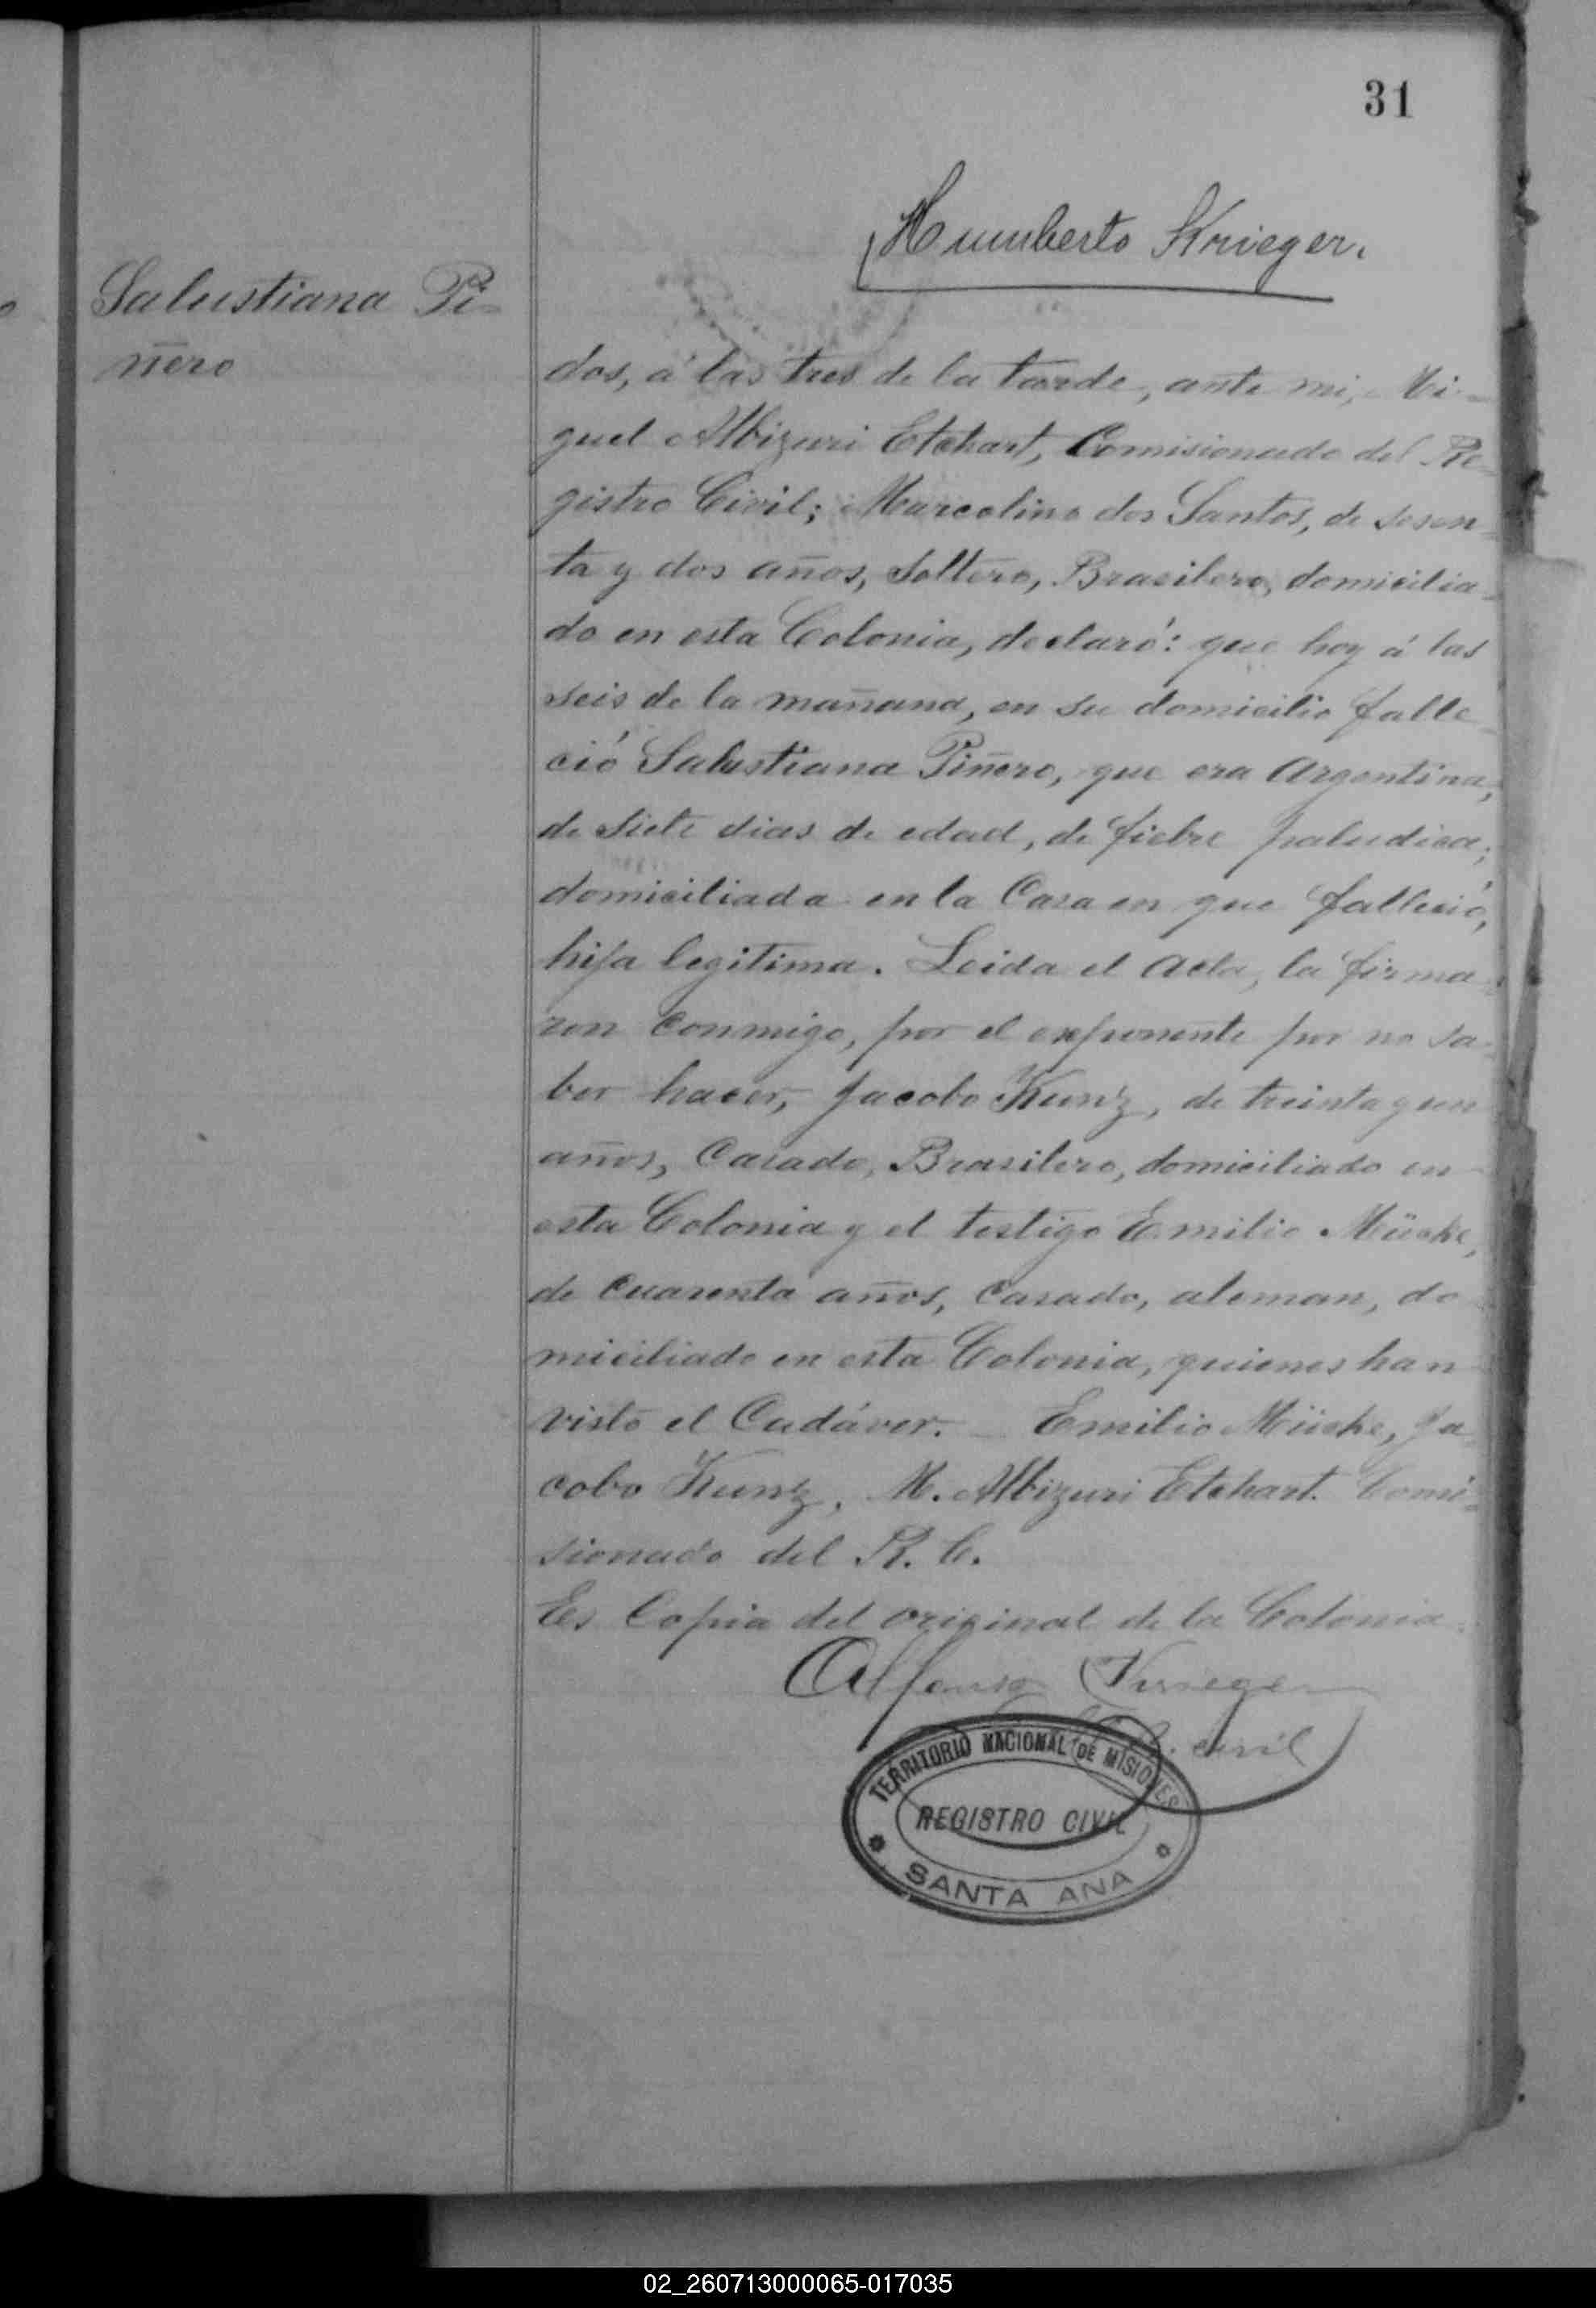 31
Humberto Krieger.
Salustiana Pi-
ñero
dos, á las tres de la tarde, ante mi, Mi-
guel Albizuri Etchart, Comisionado del Re-
gistro Civil; Marcolino dos Santos, de sesen-
ta y dos años, Soltero, Brasilero, domicilia-
do en esta Colonia, declaró: que hoy á las
seis de la mañana, en su domicilio falle-
ció Salustiana Piñero, que era Argentina,
de siete dias de edad, de fiebre paludica;
domiciliada en la Casa en que falleció,
hija legitima. Leida el Acta, la firma-
ron Conmigo, por el exponente por no sa-
ber hacer, Jacobo Kunz, de treinta y un
años, Casado, Brasilero, domiciliado en
esta Colonia y el testigo Emilio Müche,
de Cuarenta años, Casado, aleman, do-
miciliado en esta Colonia, quienes han
visto el Cadáver. _ Emilio Müche, Ja-
cobo Kunz, M. Albizuri Etchart. Comi-
sionado del R. C.
Es Copia del original de la Colonia.
Alfonso Krieger
R. civil
TERRITORIO NACIONAL DE MISIONES
REGISTRO CIVIL
SANTA ANA
02_260713000065-017035